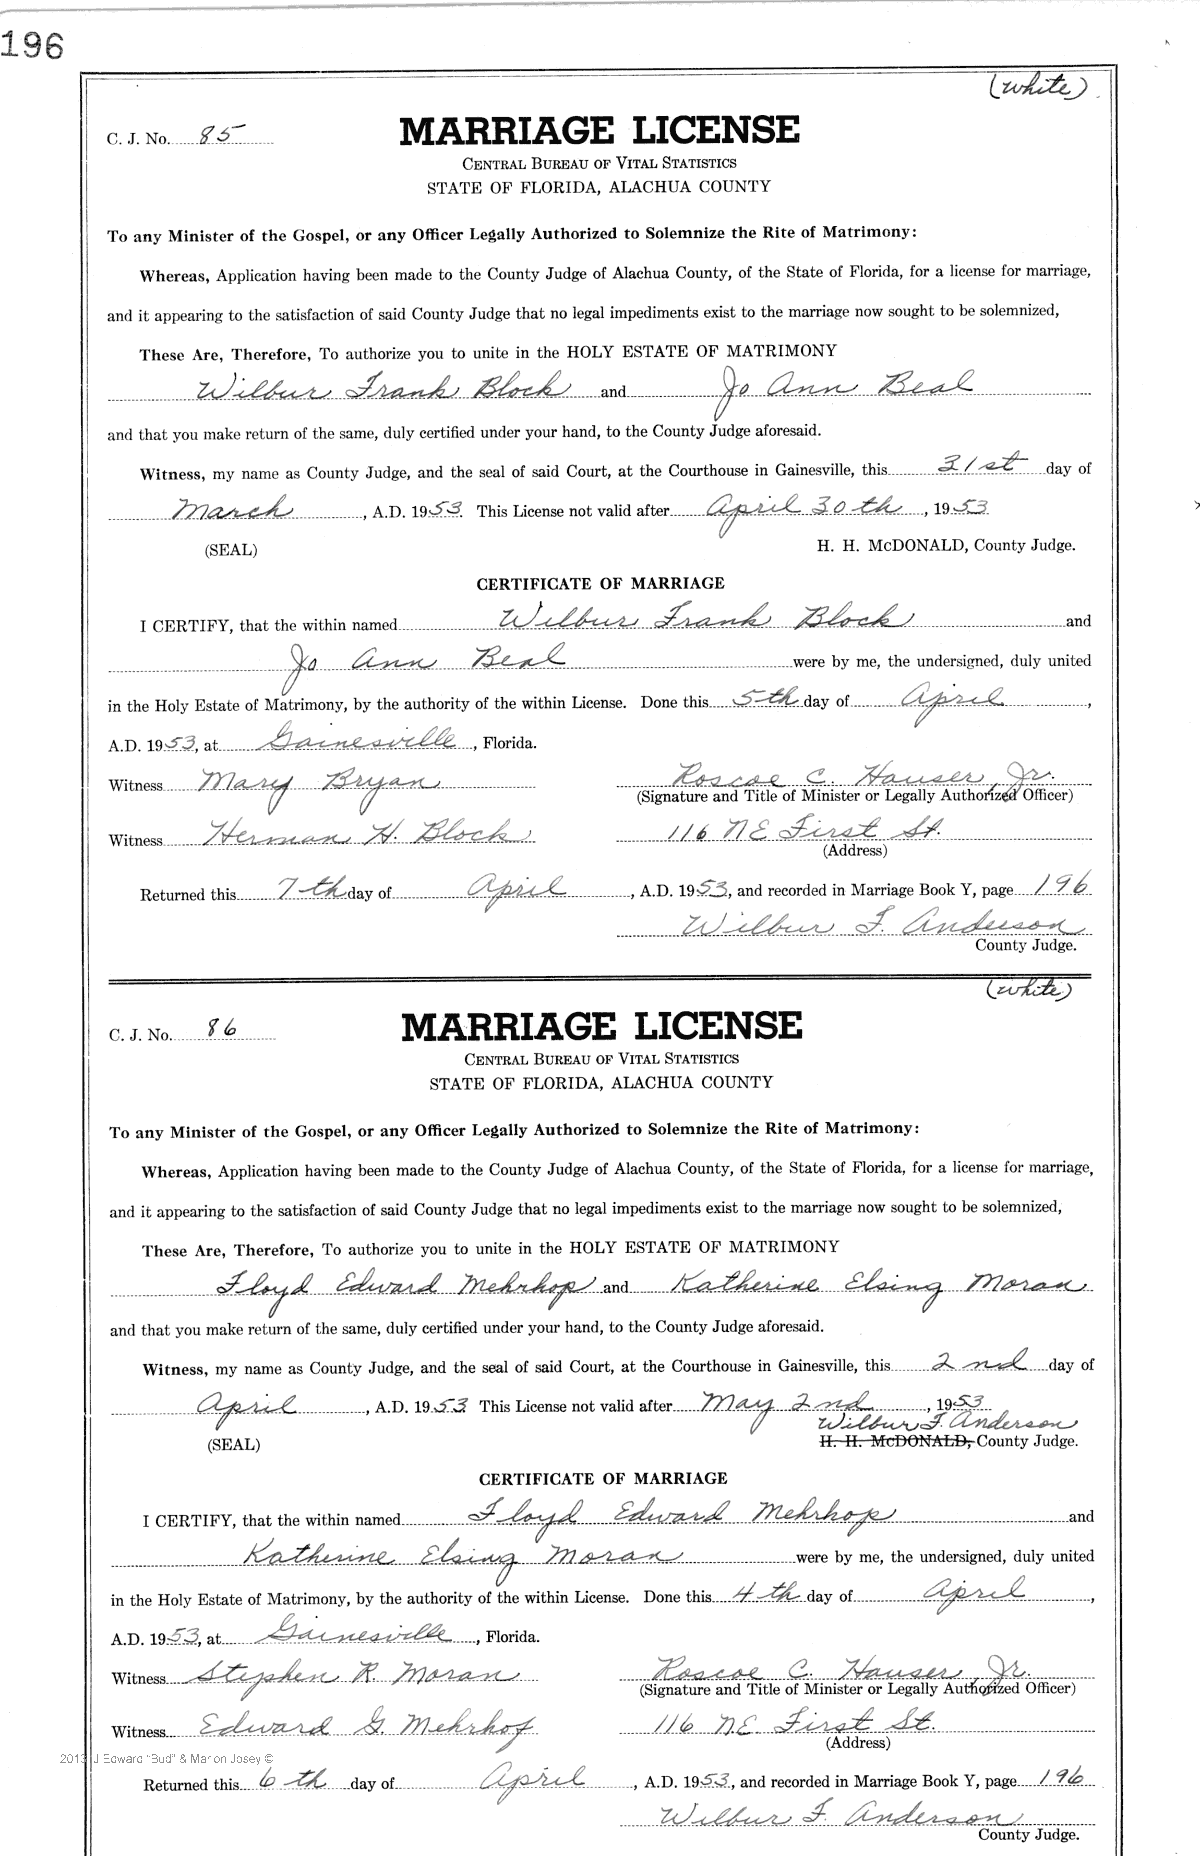 196
(white)
C. J. No. 85 MARRIAGE LICENSE
CENTRAL BUREAU OF VITAL STATISTICS
STATE OF FLORIDA, ALACHUA COUNTY
To any Minister of the Gospel, or any Officer Legally Authorized to Solemnize the Rite of Matrimony:
Whereas, Application having been made to the County Judge of Alachua County, of the State of Florida, for a license for marriage,
and it appearing to the satisfaction of said County Judge that no legal impediments exist to the marriage now sought to be solemnized,
These Are, Therefore, To authorize you to unite in the HOLY ESTATE OF MATRIMONY
Wilbur Frank Block and Jo Ann Beal
and that you make return of the same, duly certified under your hand, to the County Judge aforesaid.
Witness, my name as County Judge, and the seal of said Court, at the Courthouse in Gainesville, this 31st day of
March, A.D. 1953. This License not valid after April 30th, 1953
(SEAL) H. H. McDONALD, County Judge.
CERTIFICATE OF MARRIAGE
I CERTIFY, that the within named Wilbur Frank Block and
Jo Ann Beal were by me, the undersigned, duly united
in the Holy Estate of Matrimony, by the authority of the within License. Done this 5th day of April,
A.D. 1953, at Gainesville, Florida.
Witness Mary Bryan Roscoe C. Hauser, Jr.
(Signature and Title of Minister or Legally Authorized Officer)
Witness Herman H. Block 116 NE First St.
(Address)
Returned this 7th day of April, A.D. 1953, and recorded in Marriage Book Y, page 196
Wilbur F. Anderson
County Judge.
(white)
C. J. No. 86 MARRIAGE LICENSE
CENTRAL BUREAU OF VITAL STATISTICS
STATE OF FLORIDA, ALACHUA COUNTY
To any Minister of the Gospel, or any Officer Legally Authorized to Solemnize the Rite of Matrimony:
Whereas, Application having been made to the County Judge of Alachua County, of the State of Florida, for a license for marriage,
and it appearing to the satisfaction of said County Judge that no legal impediments exist to the marriage now sought to be solemnized,
These Are, Therefore, To authorize you to unite in the HOLY ESTATE OF MATRIMONY
Floyd Edward Mehrhop and Katherine Elsing Moran
and that you make return of the same, duly certified under your hand, to the County Judge aforesaid.
Witness, my name as County Judge, and the seal of said Court, at the Courthouse in Gainesville, this 2nd day of
April, A.D. 1953. This License not valid after May 2nd, 1953
Wilbur F. Anderson
(SEAL) H. H. McDONALD, County Judge.
CERTIFICATE OF MARRIAGE
I CERTIFY, that the within named Floyd Edward Mehrhop and
Katherine Elsing Moran were by me, the undersigned, duly united
in the Holy Estate of Matrimony, by the authority of the within License. Done this 4th day of April,
A.D. 1953, at Gainesville, Florida.
Witness Stephen R. Moran Roscoe C. Hauser, Jr.
(Signature and Title of Minister or Legally Authorized Officer)
Witness Edward G. Mehrhof 116 N.E. First St.
(Address)
2013 J Edward "Bud" & Marion Josey ©
Returned this 6th day of April, A.D. 1953, and recorded in Marriage Book Y, page 196
Wilbur F. Anderson
County Judge.